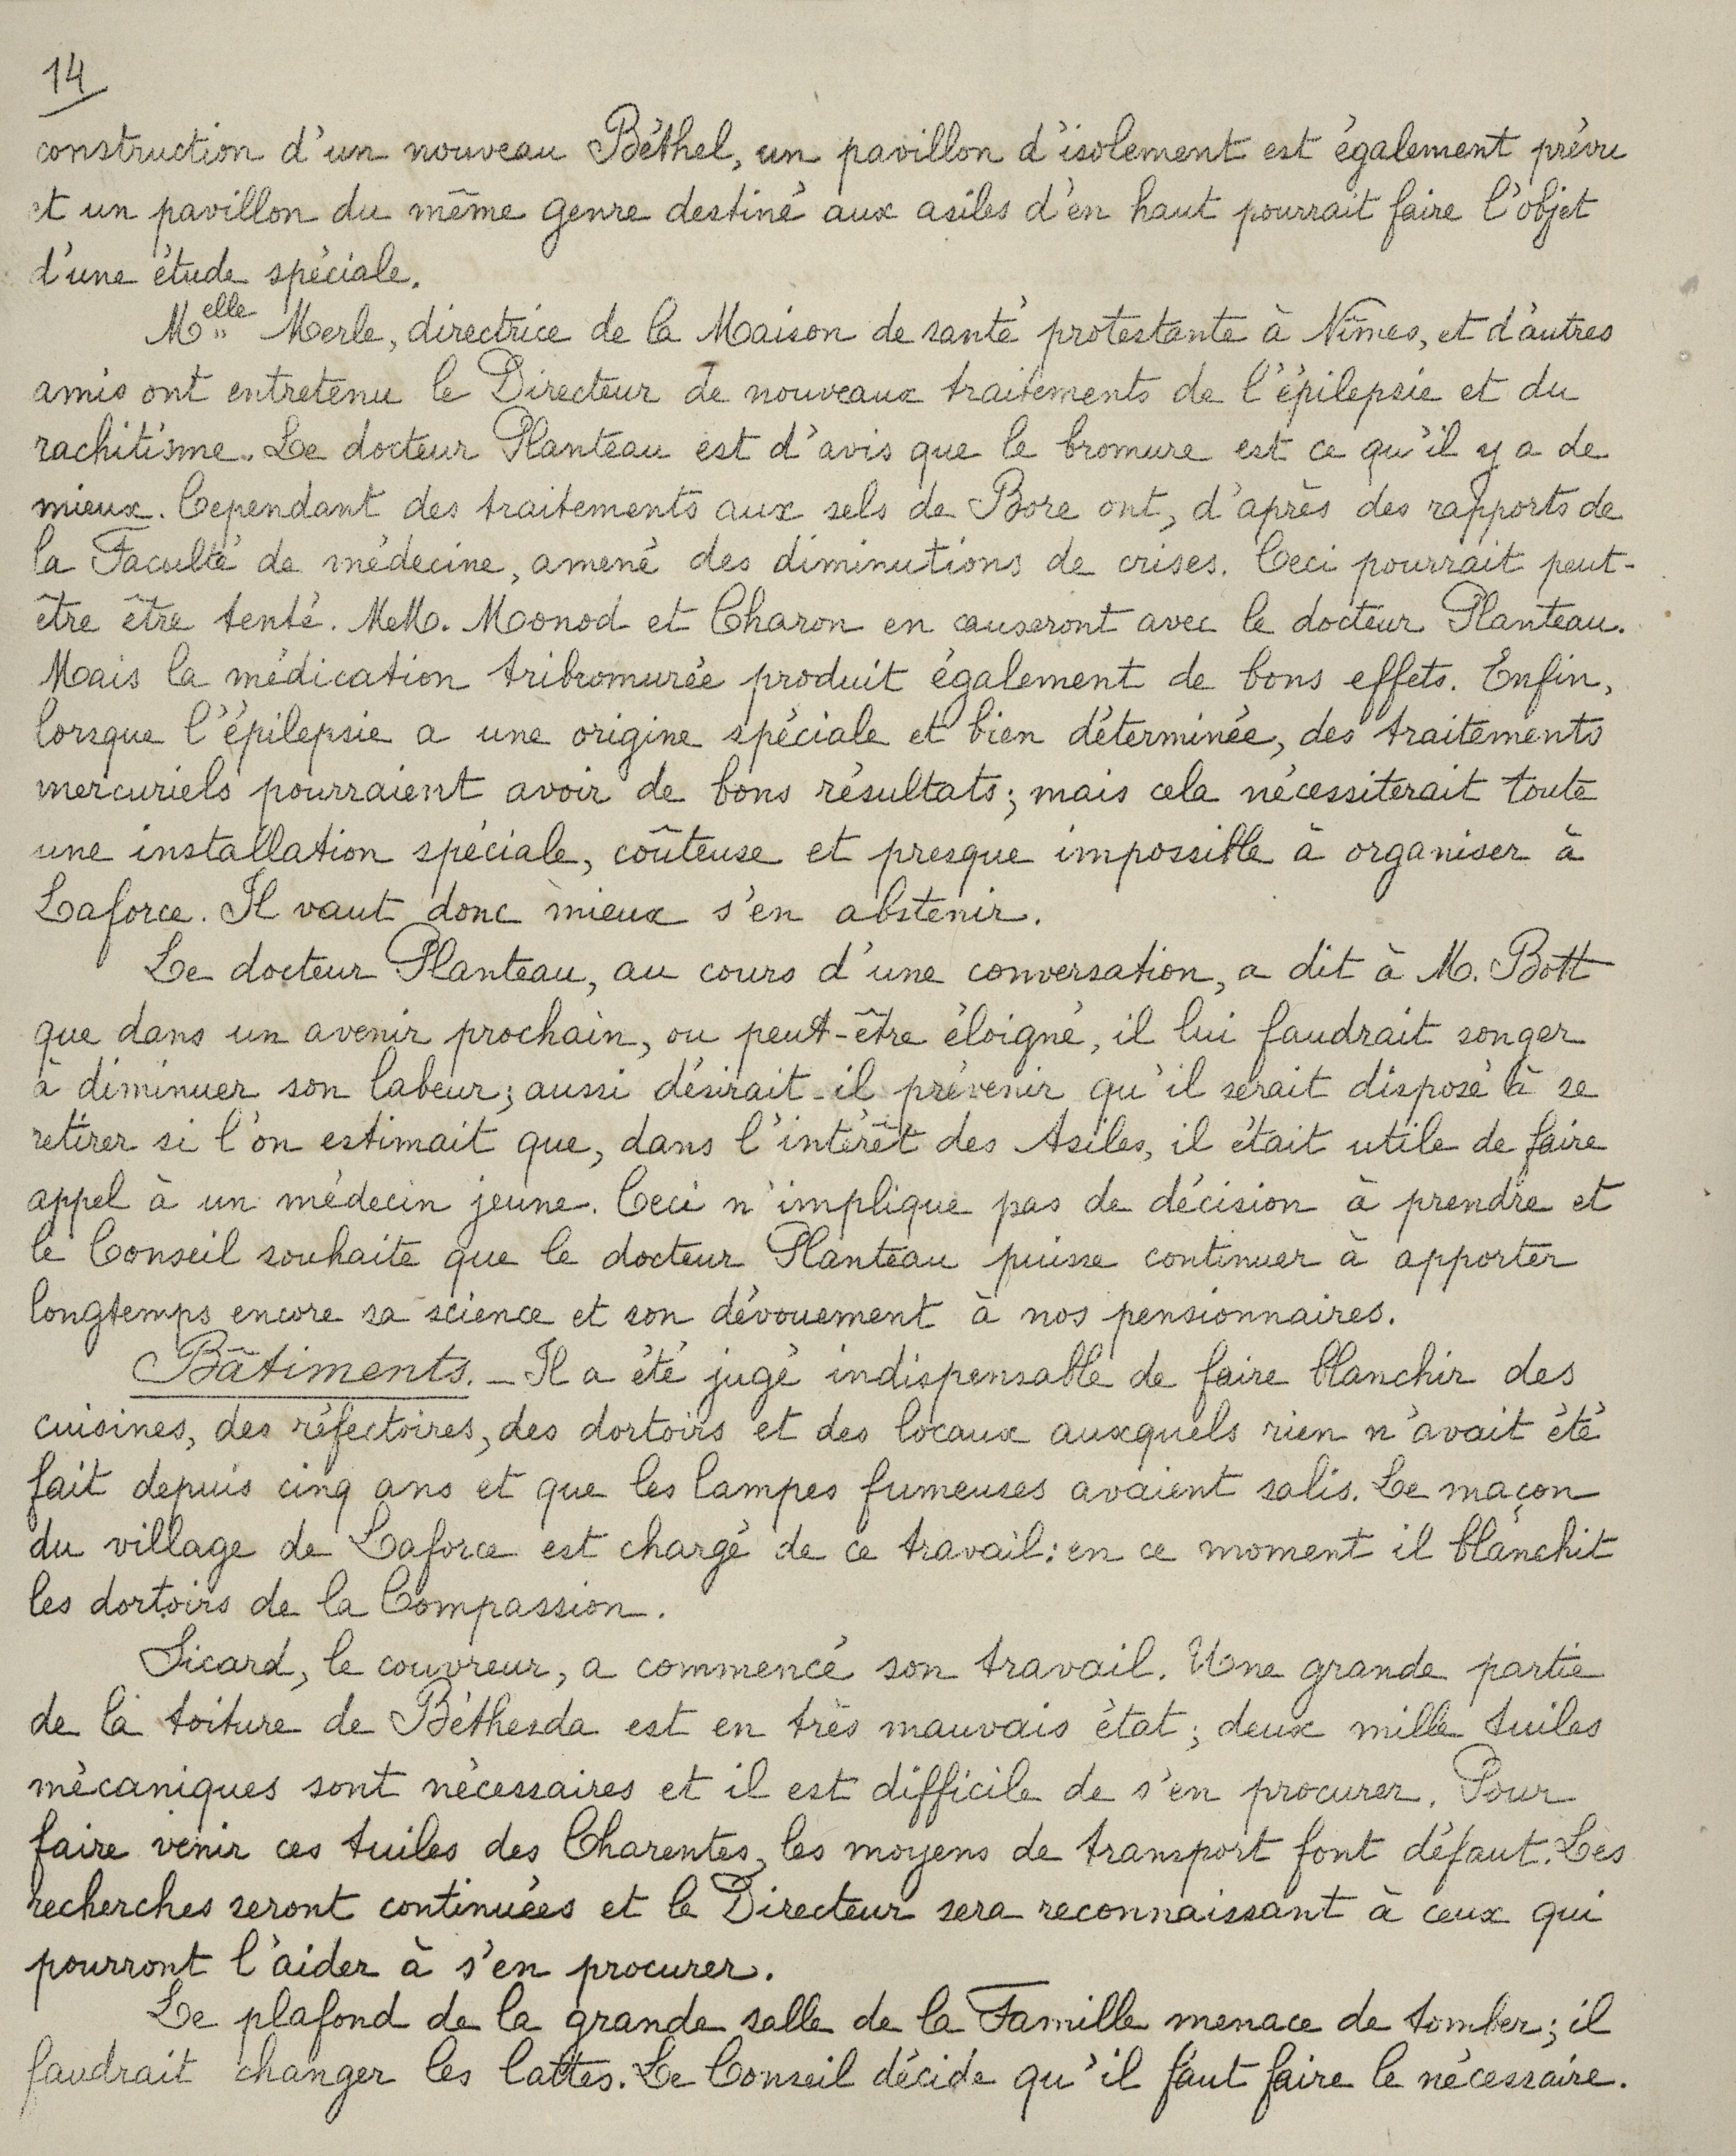 14
construction d'un nouveau Béthel, un pavillon d'isolement est également prévu
et un pavillon du même genre destiné aux asiles d'en haut pourrait faire l'objet
d'une étude spéciale.
Melle Merle, directrice de la Maison de santé protestante à Nîmes, et d'autres
amis ont entretenu le Directeur de nouveaux traitements de l'épilepsie et du
rachitisme. Le docteur Planteau est d'avis que le bromure est ce qu'il y a de
mieux. Cependant des traitements aux sels de Bore ont, d'après des rapports de
la Faculté de médecine, amené des diminutions de crises. Ceci pourrait peut-
être être tenté. MM. Monod et Charon en causeront avec le docteur Planteau.
Mais la médication tribromurée produit également de bons effets. Enfin,
lorsque l'épilepsie a une origine spéciale et bien déterminée, des traitements
mercuriels pourraient avoir de bons résultats; mais cela nécessiterait toute
une installation spéciale, coûteuse et presque impossible à organiser à
Laforce. Il vaut donc mieux s'en abstenir.
Le docteur Planteau, au cours d'une conversation, a dit à M. Bott
que dans un avenir prochain, ou peut-être éloigné, il lui faudrait songer
à diminuer son labeur; aussi désirait-il prévenir qu'il serait disposé à se
retirer si l'on estimait que, dans l'intérêt des Asiles, il était utile de faire
appel à un médecin jeune. Ceci n'implique pas de décision à prendre et
le Conseil souhaite que le docteur Planteau puisse continuer à apporter
longtemps encore sa science et son dévouement à nos pensionnaires.
Bâtiments. - Il a été jugé indispensable de faire blanchir des
cuisines, des réfectoires, des dortoirs et des locaux auxquels rien n'avait été
fait depuis cinq ans et que les lampes fumeuses avaient salis. Le maçon
du village de Laforce est chargé de ce travail: en ce moment il blanchit
les dortoirs de la Compassion.
Sicard, le couvreur, a commencé son travail. Une grande partie
de la toiture de Béthesda est en très mauvais état; deux mille tuiles
mécaniques sont nécessaires et il est difficile de s'en procurer. Pour
faire venir ces tuiles des Charentes, les moyens de transport font défaut. Les
recherches seront continuées et le Directeur sera reconnaissant à ceux qui
pourront l'aider à s'en procurer.
Le plafond de la grande salle de la Famille menace de tomber; il
faudrait changer les lattes. Le Conseil décide qu'il faut faire le nécessaire.